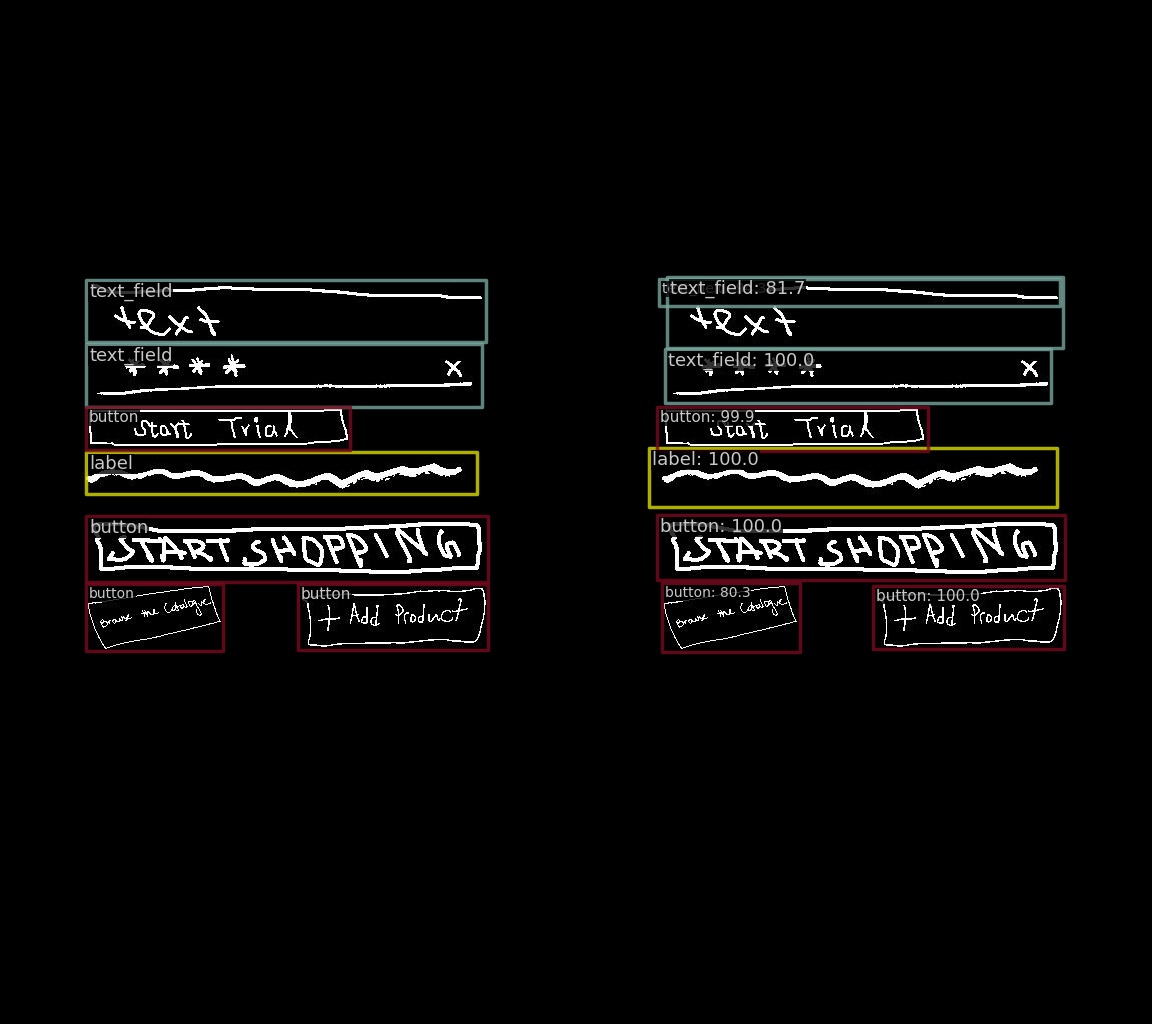 text_field
text
text_field
* * * *
x
button
Start Trial
label
button
START SHOPPING
button
Browse the Catalogue
button
+ Add Product
text_field: 81.7
text
text_field: 100.0
x
button: 99.9
Start Trial
label: 100.0
button: 100.0
START SHOPPING
button: 80.3
Browse the Catalogue
button: 100.0
+ Add Product